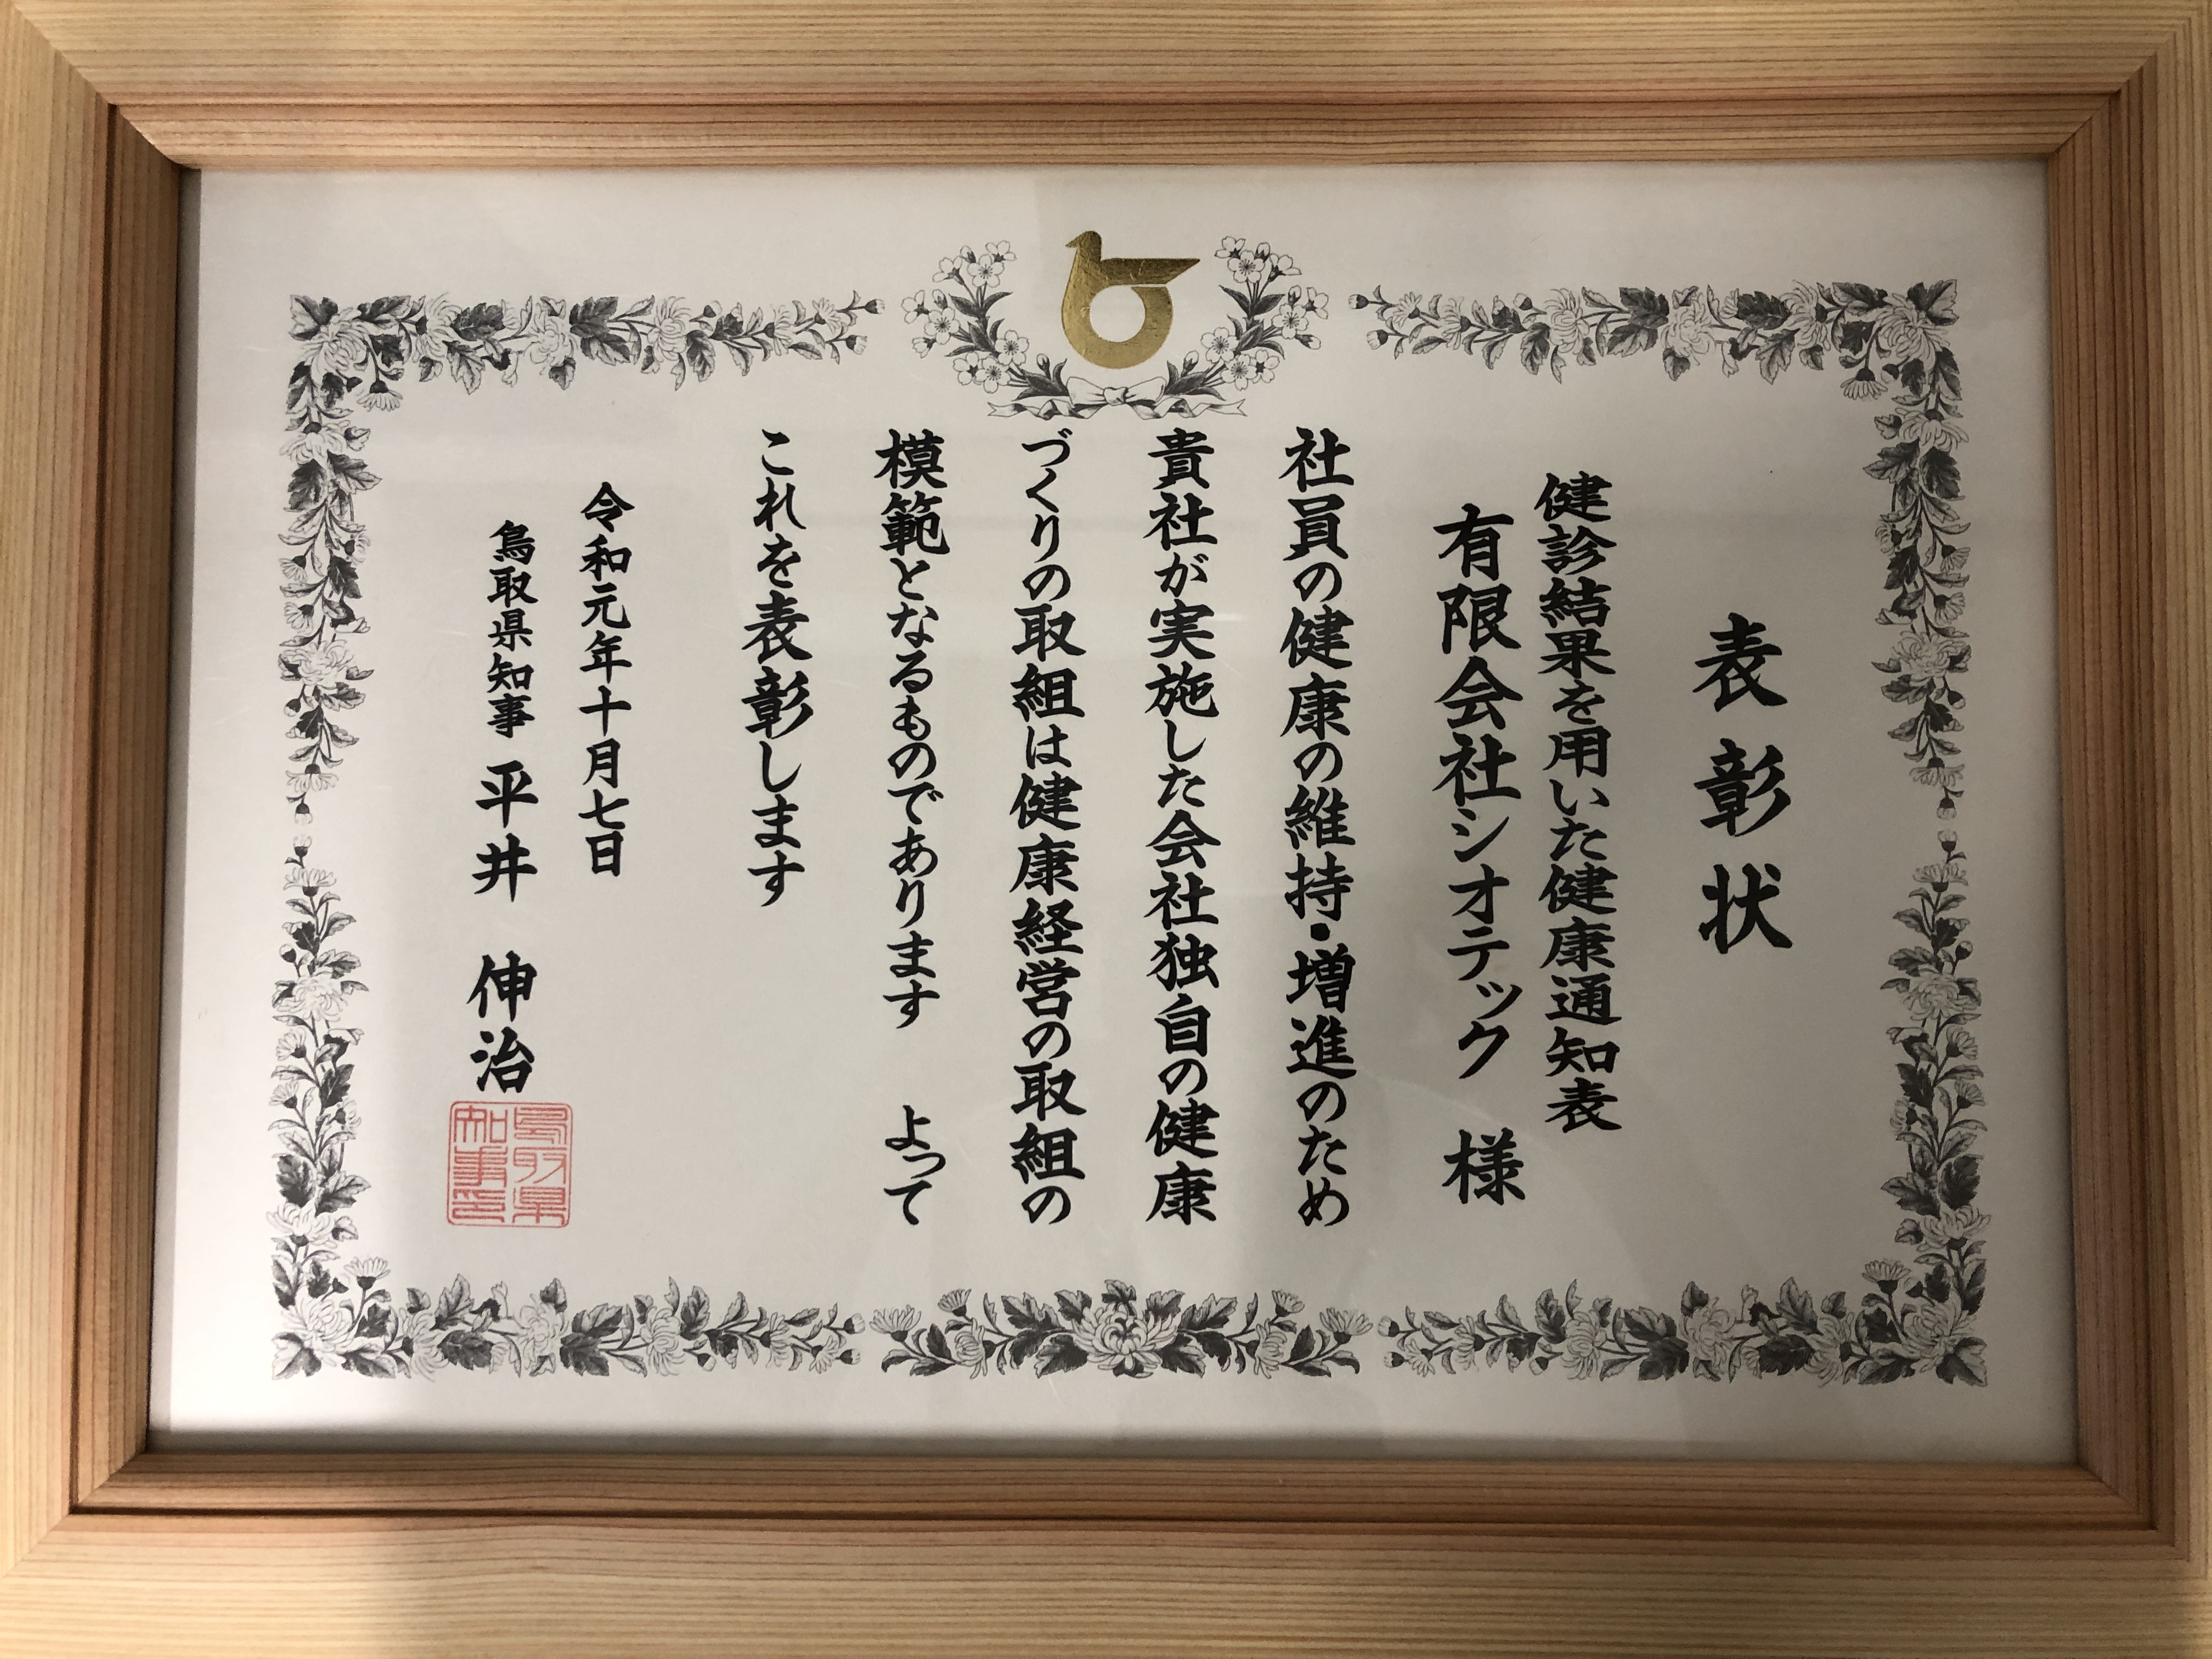 表彰状
健診結果を用いた健康通知表
有限会社シオテック 様
社員の健康の維持・増進のため
貴社が実施した会社独自の健康
づくりの取組は健康経営の取組の
模範となるものであります よって
これを表彰します
令和元年十月七日
鳥取県知事 平井 伸治
鳥取県
知事印